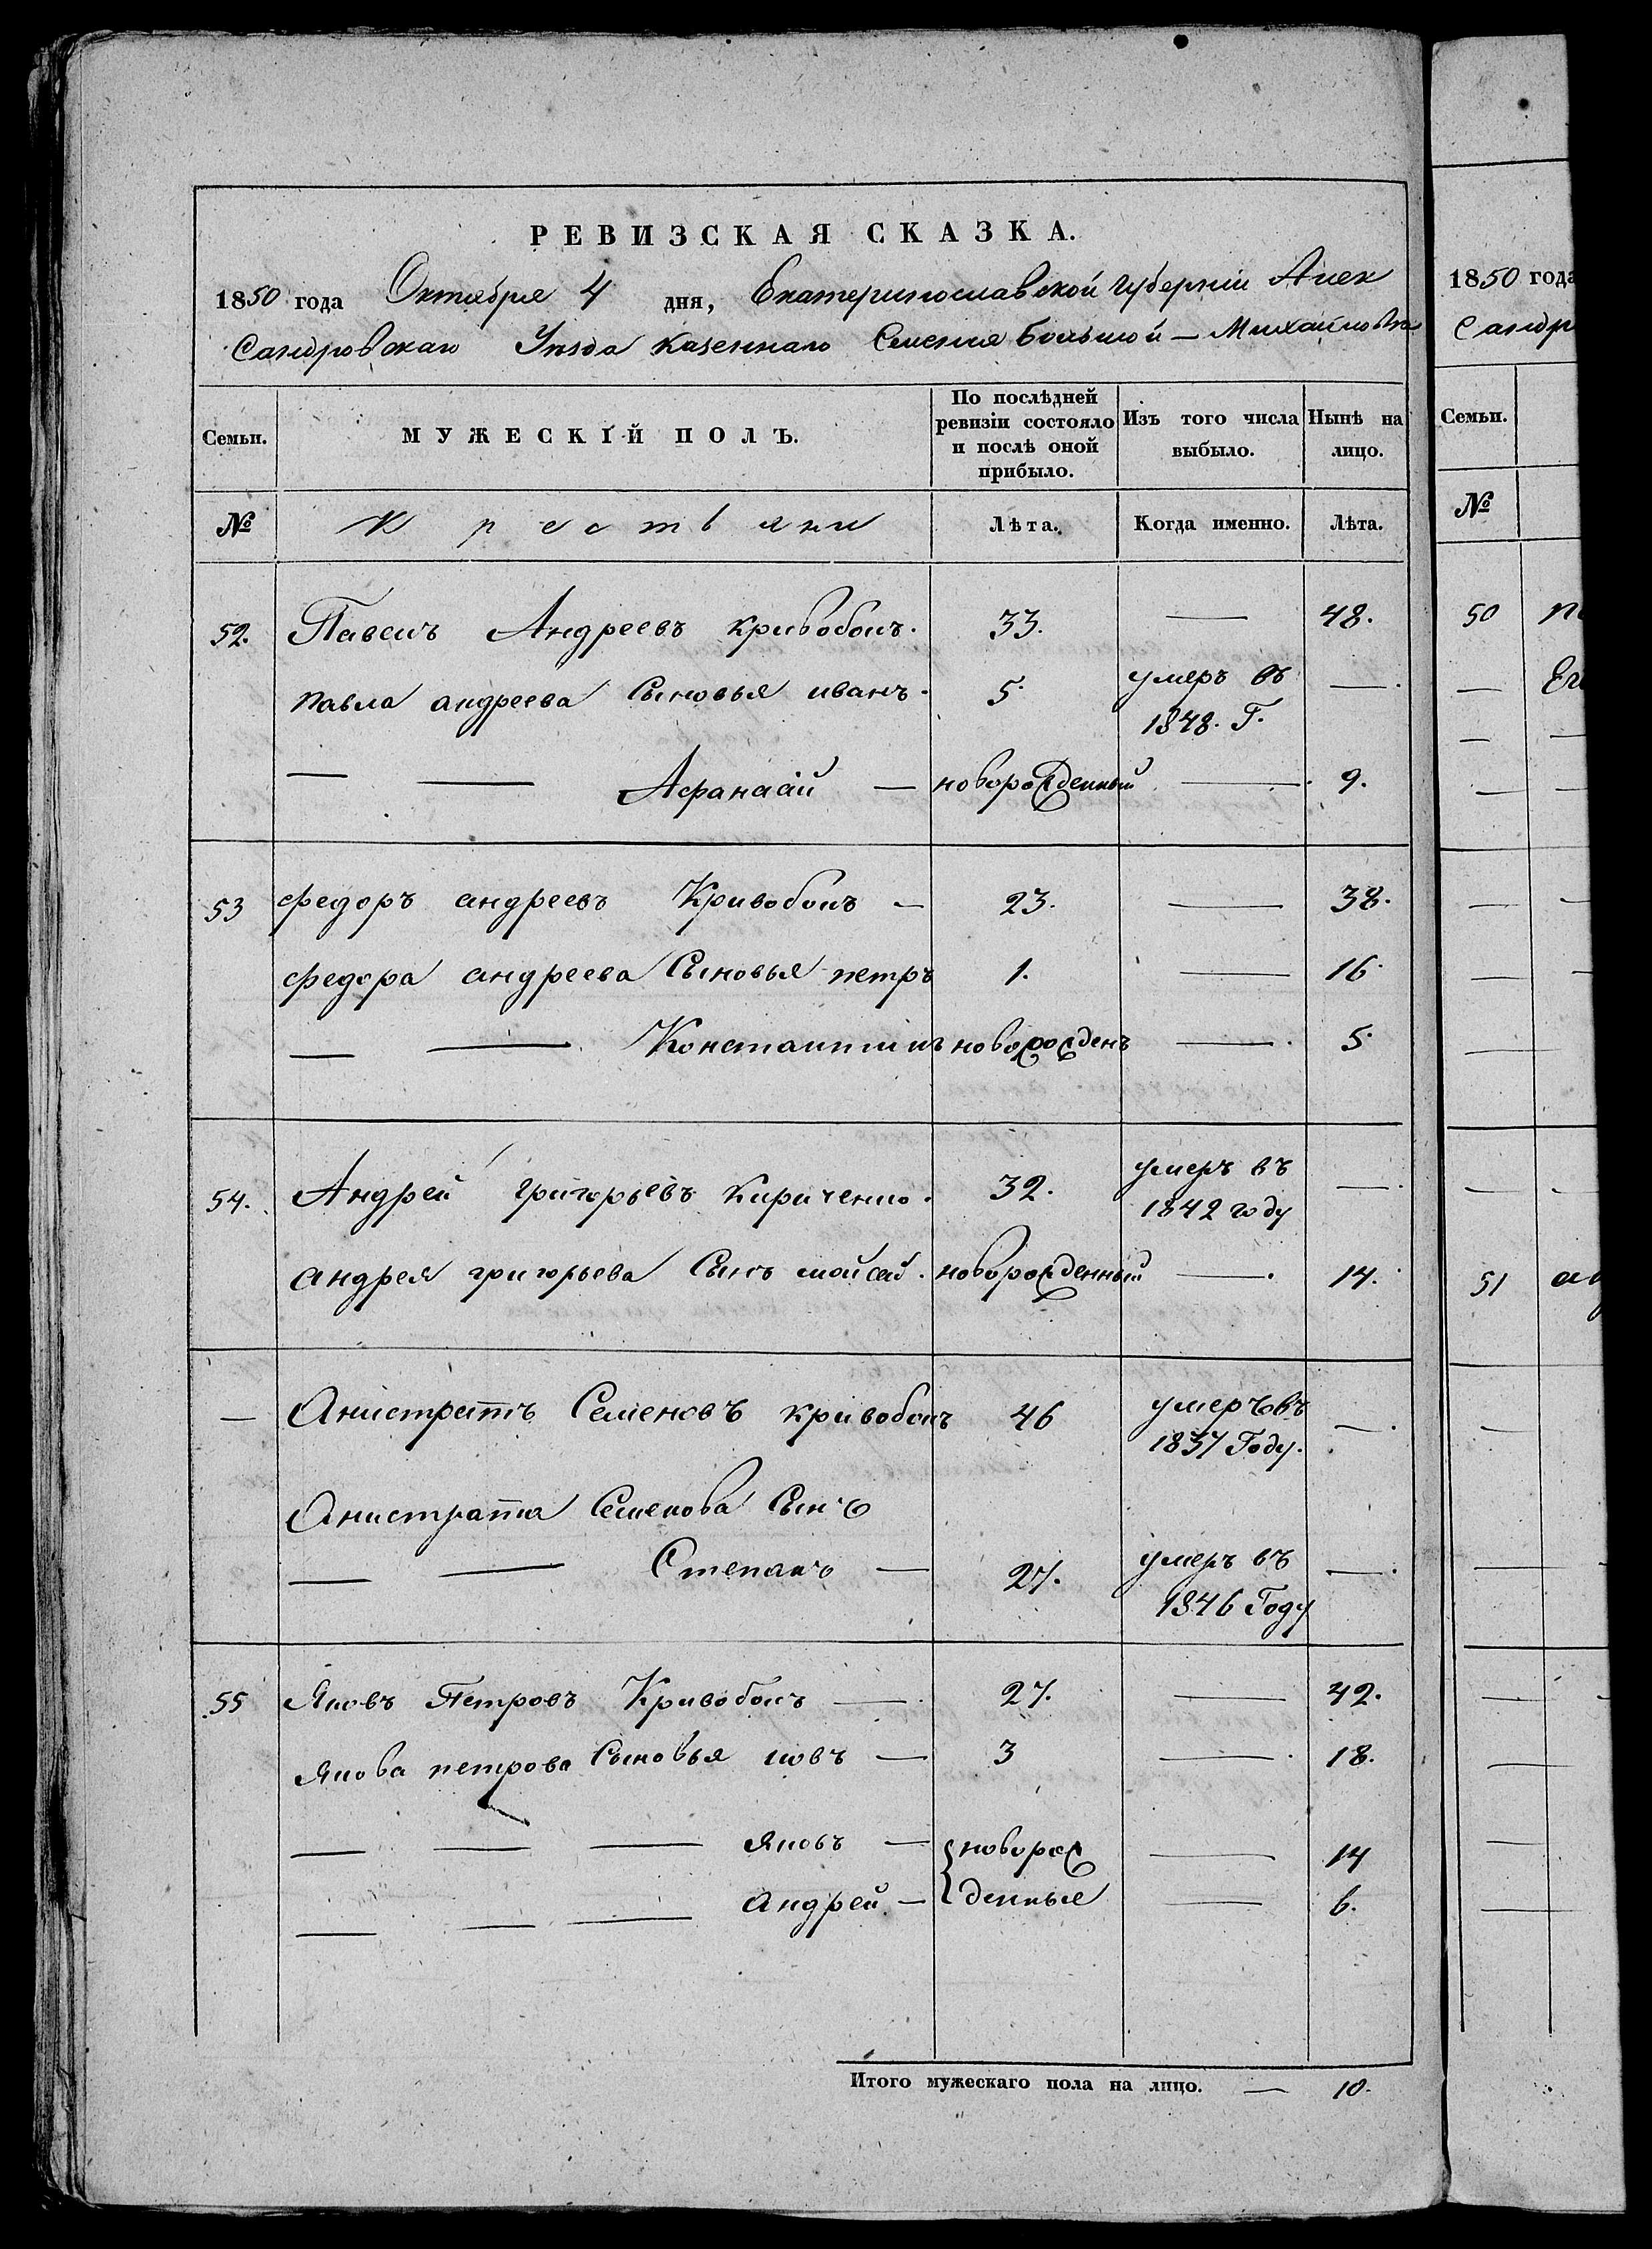 РЕВИЗСКАЯ СКАЗКА.
1850 года Октября 4 дня, Екатеринославской Губерніи Алек
Сандровскаго Уѣзда Казеннаго Селенія Большой — Михайловки
Семьи. МУЖЕСКІЙ ПОЛЪ. По послѣдней ревизіи состояло и послѣ оной прибыло. Изъ того числа выбыло. Нынѣ на лицо.
№ Крестьяни Лѣта. Когда именно. Лѣта.
52. Павелъ Андреевъ Кривобокъ. 33. — 48.
Павла андреева Сыновья иванъ. 5. умеръ въ 1848. Г. —
— — Афанасій — новорожденный — 9.
53 федоръ андреевъ Кривобокъ — 23. — 38.
федора андреева Сыновья петръ 1. — 16.
— — Константинъ новорожденъ — 5.
54. Андрей григорьевъ Кириченко. 32. умеръ въ 1842 году —
андрея григорьева Сынъ мойсей. новорожденный — 14.
— Анистратъ Семеновъ кривобокъ 46 умеръ въ 1837 Году. —
Анистрата Семенова Сынъ
— — Степанъ — 27. умеръ въ 1846 Году —
55 Яковъ Петровъ Кривобокъ — 27. — 42.
Якова петрова Сыновья иовъ — 3 — 18.
— — — яковъ — новорож — 14
— — — андрей — денные — 6.
Итого мужескаго пола на лицо. — 10.
1850 года
Сандр
Семьи.
№
50
51